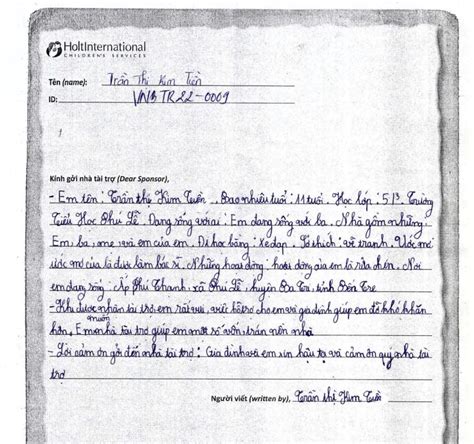 Holt International
CHILDREN'S SERVICES
Tên (name): Trần Thị Kim Tiền
ID: VNB TR22-0009
Kính gởi nhà tài trợ (Dear Sponsor),
- Em tên : Trần thị Kim Tiền . Bao nhiêu tuổi : 11 tuổi . Học lớp : 5 . Trường
Tiểu Học Phú Lễ . Đang sống với ai : Em đang sống với ba . Nhà gồm những
Em , ba , mẹ và em của em . Đi học bằng : Xe đạp . Sở thích : vẽ tranh . Ước mơ
ước mơ của là được làm bác sĩ . Những hoạt động : hoạt động của em là rửa chén . Nơi
em đang sống : Ấp Phú Thạnh , xã Phú Lễ , huyện Ba Tri , tỉnh Bến Tre
- Khi được nhận tài trợ em rất vui , việc hỗ trợ cho em và gia đình giúp em đỡ khó khăn
hơn . Em muốn nhà tài trợ giúp em một số vốn
- Lời cảm ơn gởi đến nhà tài trợ : Gia đình và em xin và cảm ơn quý nhà tài
trợ
Người viết (written by), Trần thị Kim Tiền